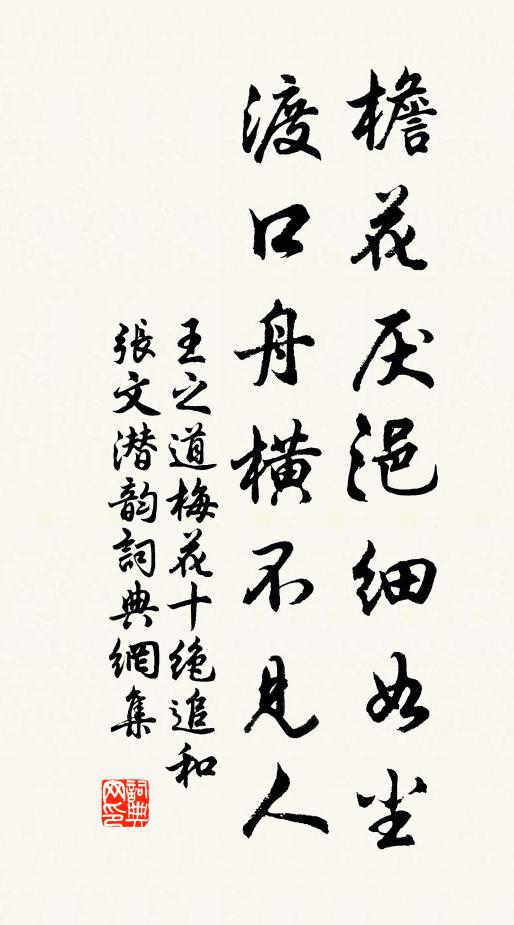 檐花厌浥細如尘
渡口舟橫不見人
王之道梅花十绝追和
張文潜韵詞典網集
詞典
网印